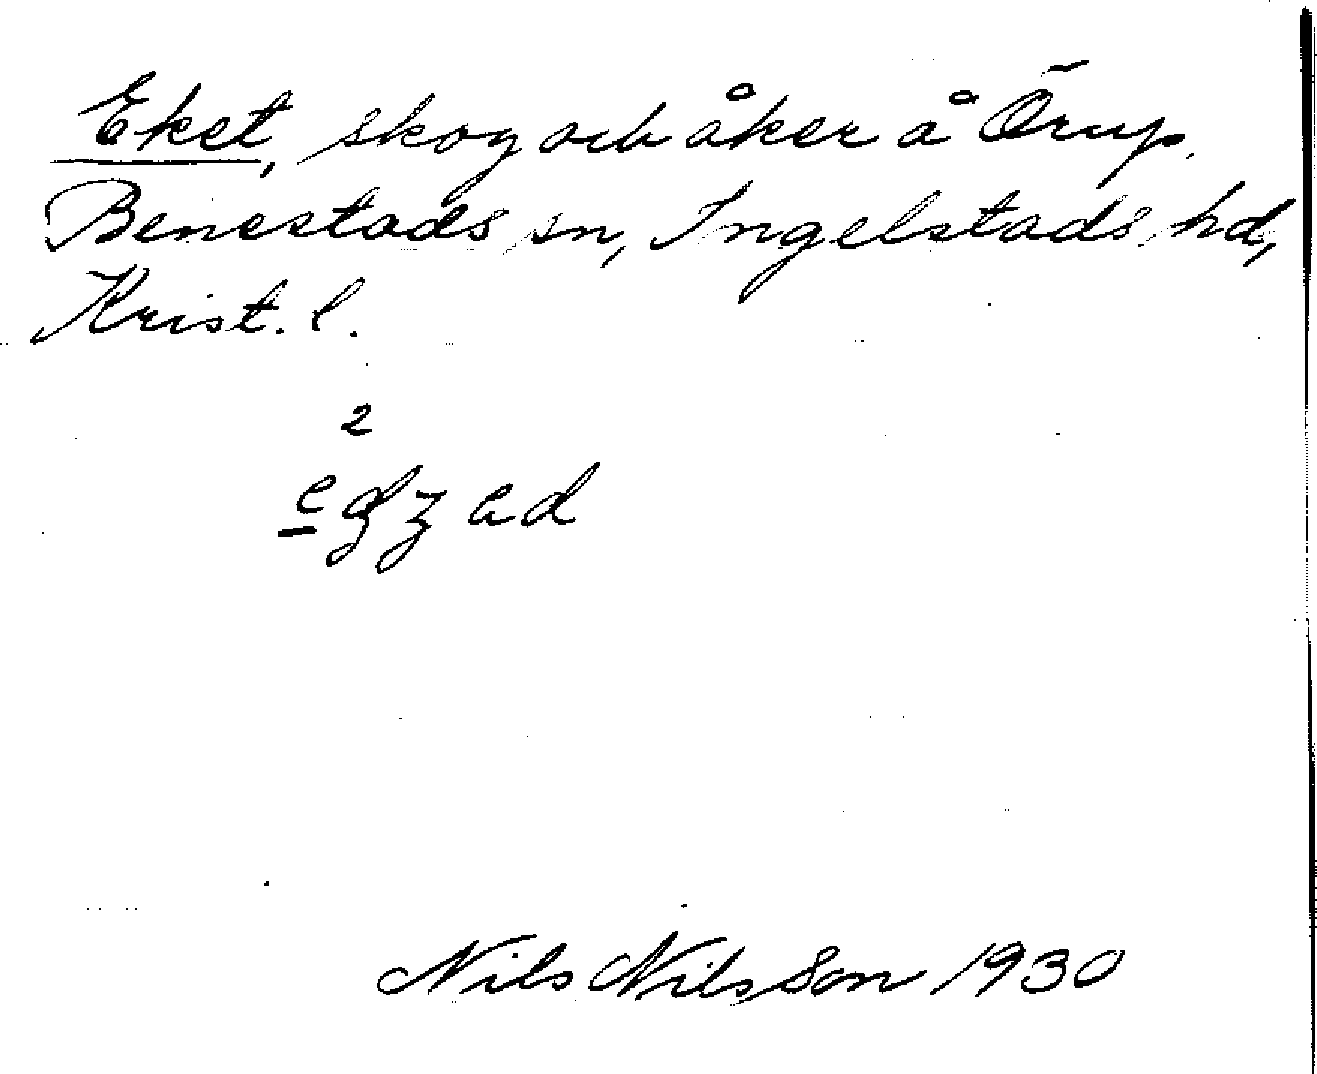 Eket, skog och åker å Örup.
Benestads sn, Ingelstads hd,
Krist. l.
2
Nils Nilsson 1930